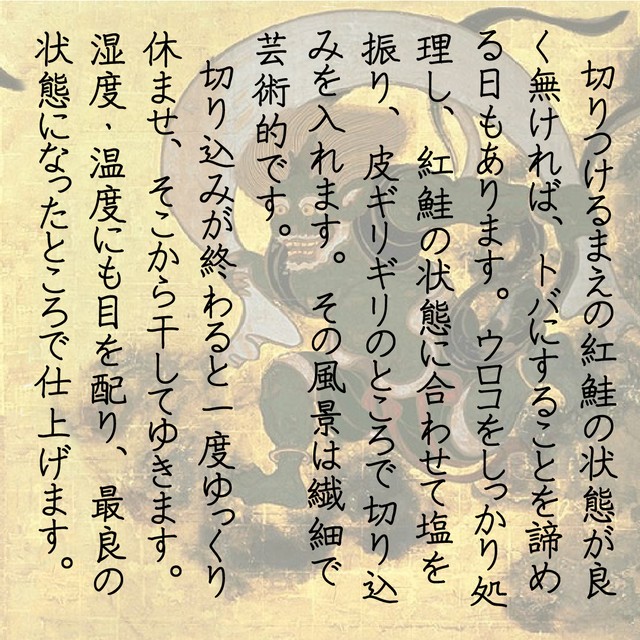 切りつけるまえの紅鮭の状態が良
く無ければ、トバにすることを諦め
る日もあります。ウロコをしっかり処
理し、紅鮭の状態に合わせて塩を
振り、皮ギリギリのところで切り込
みを入れます。その風景は繊細で
芸術的です。
切り込みが終わると一度ゆっくり
休ませ、そこから干してゆきます。
湿度・温度にも目を配り、最良の
状態になったところで仕上げます。